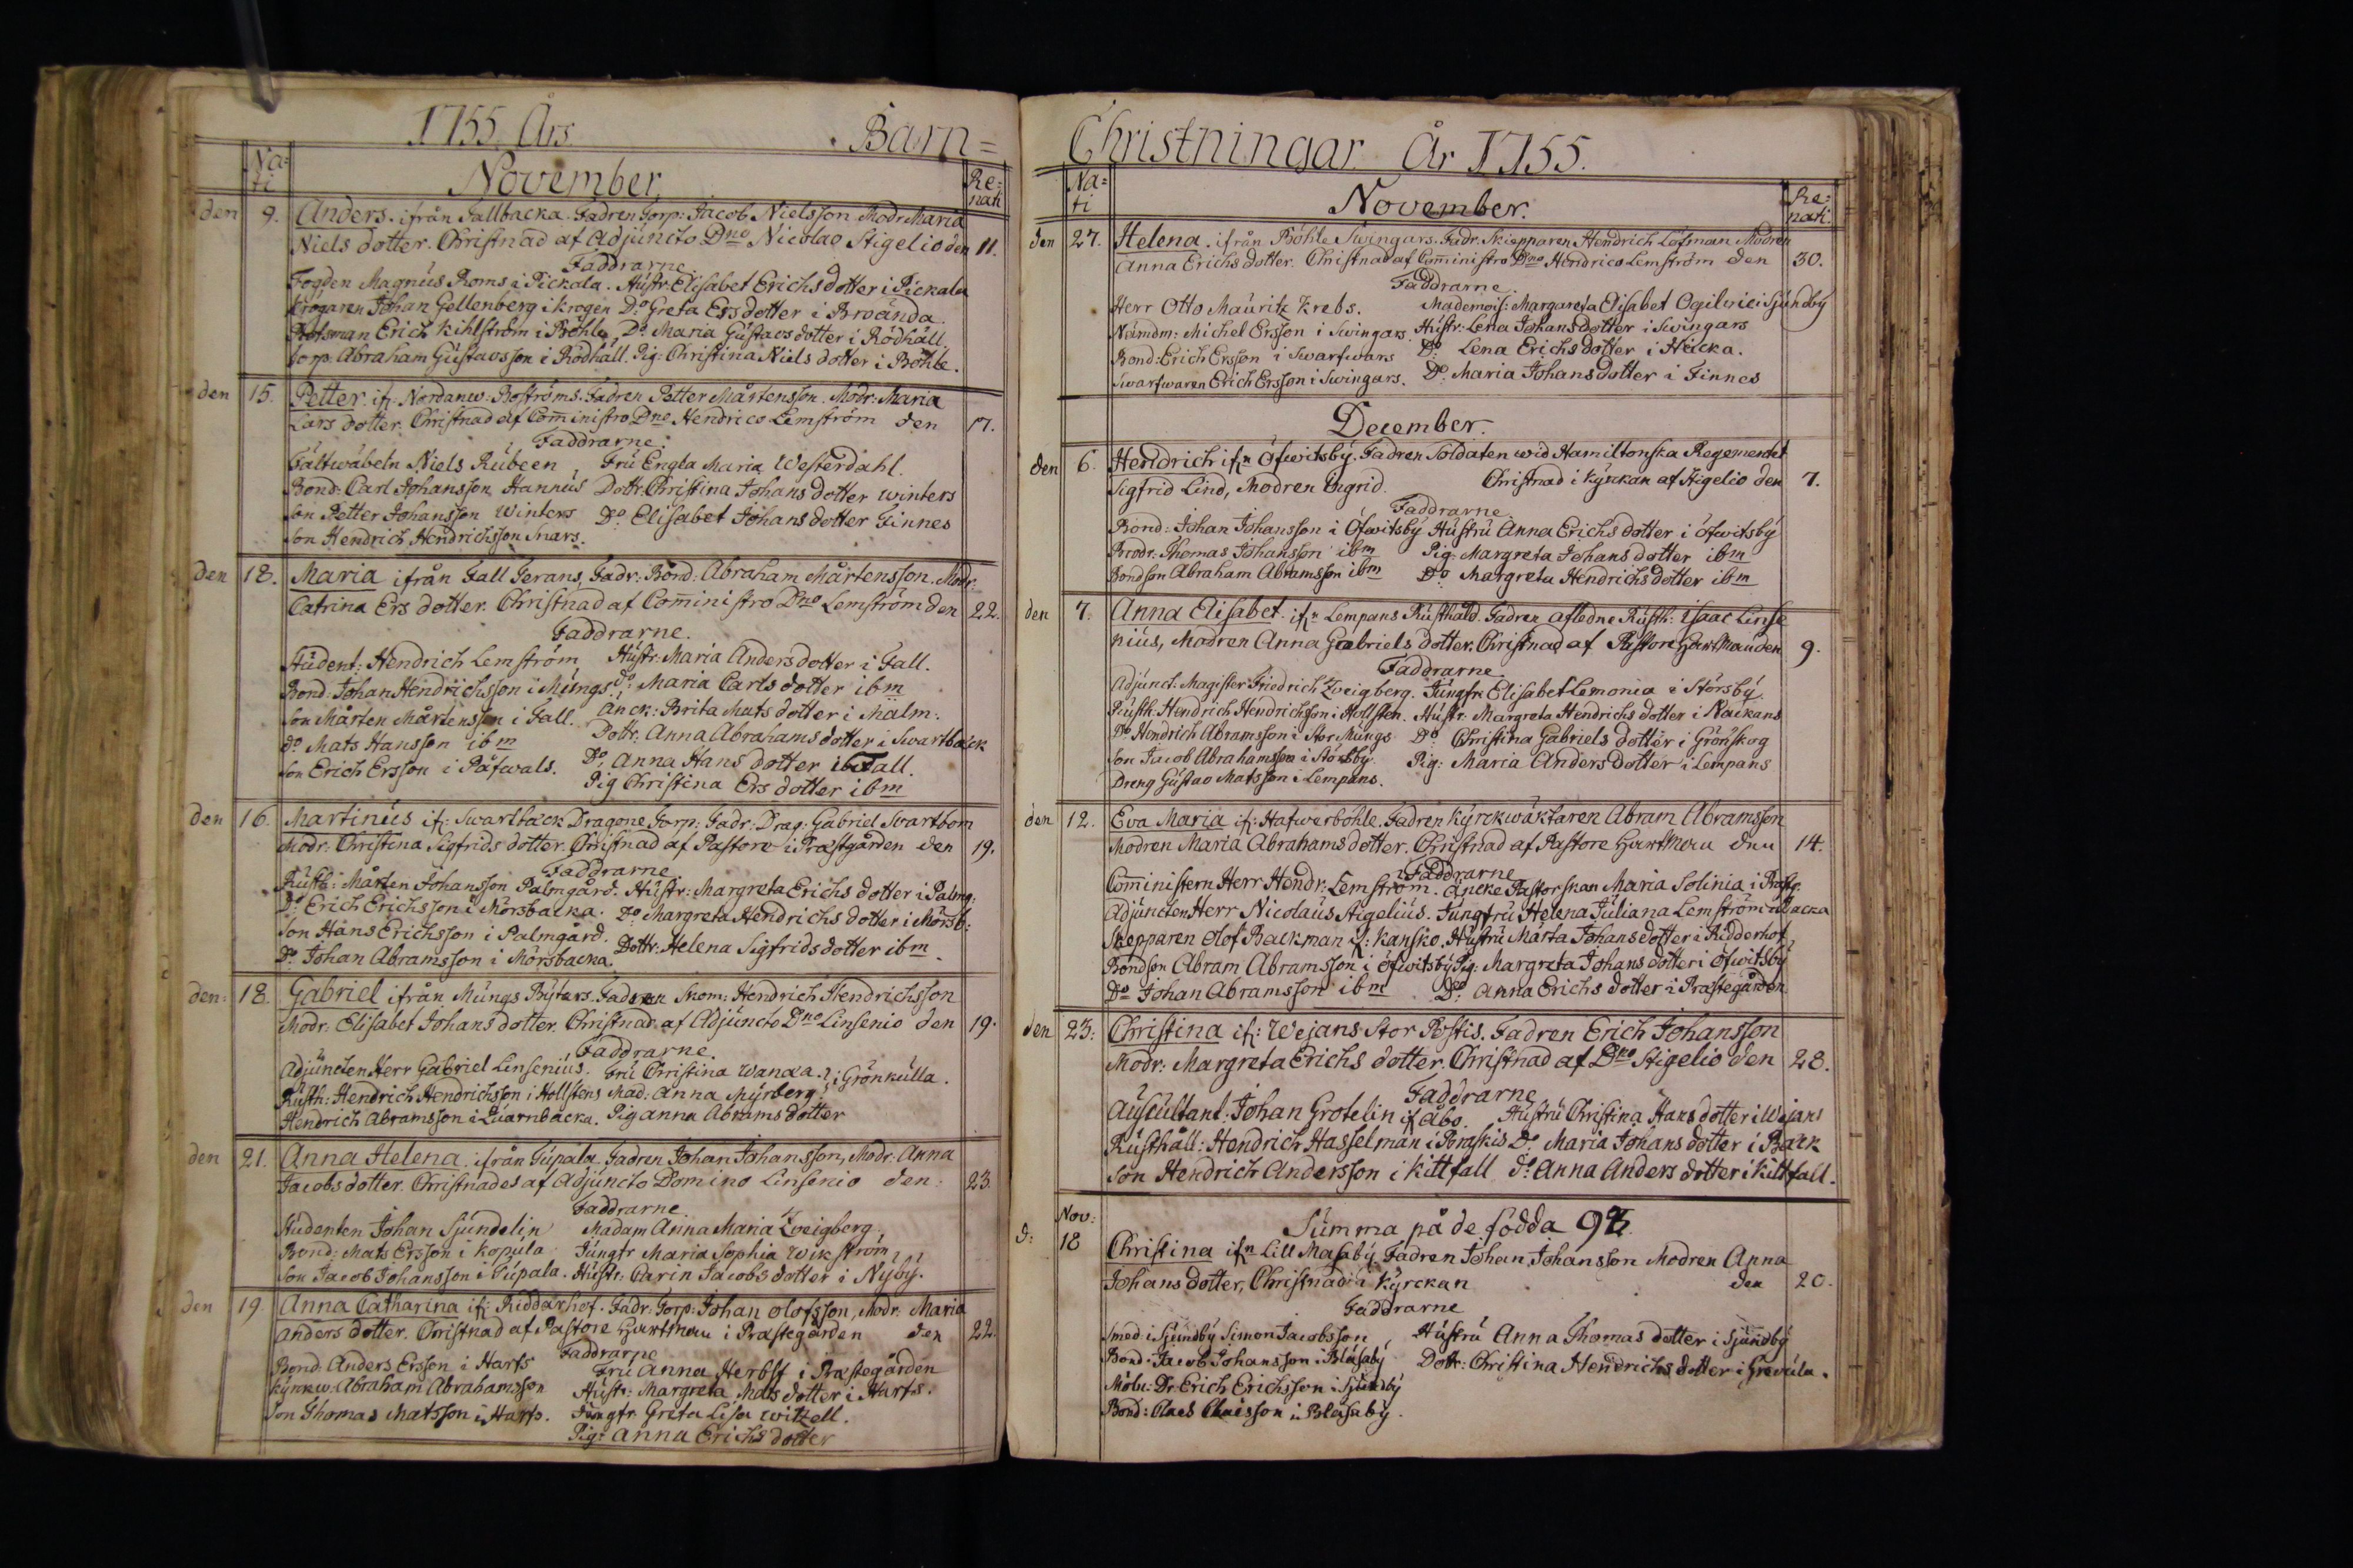 1755 Års Barn=
Na=
ti
November.
Re=
nati
den 9. Anders. ifrån Tallbacka. Fadren Torp: Jacob Nielsson Modr. Maria
Niels dotter. Christnad af Adjuncto Dno Nicolao Stigelio den 11.
Faddrarne
Fogden Magnus Roms i Pickala. Hustr. Elisabet Erichs dotter i Pickala
Krogaren Johan Gellenberg i krogen Do Greta Ersdotter i Broända.
Botsman Erich Kihlström i Böhle, Do Maria Gustavs dotter i Rödhäll.
Torp: Abraham Gustavsson i Rödhäll. Pig: Christina Niels dotter i Böhle.
den 15. Petter. if: Nordanw: Boströms. Fadren Petter Mårtensson. Modr: Maria
Lars dotter. Christnad af Comministro Dno Hendrico Lemström den 17.
Faddrarne.
Fältwäbeln Niels Rubeen, Fru Engla Maria Westerdahl.
Bond: Carl Johansson Hannus Dottr. Christina Johans dotter winters
Son Petter Johansson Winters Do Elisabet Johans dotter Finnes
Son Hendrich Hendrichsson Snars.
den 18. Maria ifrån Fall Gerans, Fadr: Bond: Abraham Mårtensson. Modr:
Catrina Ers dotter. Christnad af Comministro Dno Lemström den 22.
Faddrarne.
Student: Hendrich Lemström Hustr: Maria Anders dotter i Fall.
Bond: Johan Hendrichsson i Mungs. Do: Maria Carls dotter ibm
Son Mårten Mårtensson i Fall. Anck: Brita Mats dotter i Malm.
do Mats Hansson ibm Dottr: Anna Abrahams dotter i Swartback
Son Erich Ersson i Påfwals. Do; Anna Hans dotter i Fall.
Pig Christina Ers dotter ibm
den 16. Martinus if: Swartback Dragone Torp: Fadr: Drag: Gabriel Swartbom
Modr: Christina Sigfrids dotter. Christnad af Pastore i Prästgården den 19.
Faddrarne
Rusth: Mårten Johansson Palmgård. Hustr: Margreta Erichs dotter i Palmg:
Do Erich Erichsson i Mörsbacka. Do Margreta Hendrichs dotter i Mörsb:
Son Hans Erichsson i Palmgård. Dottr: Helena Sigfrids dotter ibm.
Do Johan Abramsson i Mörsbacka
den: 18. Gabriel ifrån Mungs Bysters. Fadren Skom: Hendrich Hendrichsson
Modr: Elisabet Johans dotter. Christnad af Adjuncto Dno Linsenio den 19.
Faddrarne.
Adjuncten Herr Gabriel Linsenius. Fru Christina Wanaa. i Grönkulla.
Rusth: Hendrich Hendrichsson i Hollstens Mad: Anna Myrberg.
Hendrich Abramsson i Quarnbacka. Pig Anna Abrams dotter
den 21. Anna Helena. ifrån Gupala. Fadren Johan Johansson, Modr: Anna
Jacobs dotter. Christnades af Adjuncto Domino Linsenio den 23.
Faddrarne.
Studenten Johan Sjundelin Madam Anna Maria Zveigberg.
Bond: Mats Ersson i Kopula Jungfr Maria Sophia Wikström
Son Jacob Johansson i Gupala. Hustr: Carin Jacobs dotter i Nyby.
den 19. Anna Catharina if: Riddarhof. Fadr. Torp: Johan Olofsson, Modr: Maria
Anders dotter. Christnad af Pastore Hartman i Prästegården den 22.
Faddrarne
Bond: Anders Ersson i Harfs Fru Anna Herbst i Prästegården
Kyrkw: Abraham Abrahamsson Hustr: Margreta Mats dotter i Harfs.
Son Thomas Matsson i Harfs. Jungfr Greta Lisa Wittell.
Pig: Anna Erichs dotter
Christningar År 1755.
Na=
ti
November.
Re=
nati.
den 27. Helena. ifrån Böhle Swingars. Fadr. Skiepparen Hendrich Löfman Modren
Anna Erichs dotter. Christnad af Comministro Dno Hendrico Lemström den 30.
Faddrarne.
Herr Otto Mauritz Krebs. Mademois: Margareta Elisabet Ogilwie i Sjundby
Nämdm: Michel Ersson i Swingars. Hustr: Lena Johans dotter i Swingars
Bond: Erich Ersson i Swarfwars Do Lena Erichs dotter i Häcka.
Swarfwaren Erich Ersson i Swingars. Do. Maria Johans dotter i Finnes
December.
den 6. Hendrich ifn Öfwitsby. Fadren Soldaten wid Hamiltonska Regementet
Sigfrid Lind, Modren Ingrid. Christnad i Kyrkan af Stigelio den 7.
Faddrarne.
Bond: Johan Johansson i Öfwitsby Hustru Anna Erichs dotter i Öfwitsby
Brodr. Thomas Johansson ibm Pig: Margreta Johans dotter ibm
Bondson Abraham Abramsson ibm Do Margreta Hendrichs dotter ibm
den 7. Anna Elisabet. ifn Lempans Rusthåld. Fadren afledne Rusth: Isaac Linse
nius, Modren Anna Gabriels dotter. Christnad af Pastore Hartman den 9.
Faddrarne
Adjunct. Magister Friedrich Zveigberg. Jungfr Elisabet Lemonia i Störsby.
Rusth: Hendrich Hendrichsson i Hollsten. Hustr: Margreta Hendrichs dotter i Nackans
Do Hendrich Abramsson i Stor Mungs Do Christina Gabriels dotter i Grönskog
Son Jacob Abrahamsson i Störsby. Pig: Maria Anders dotter i Lempans
Dreng Gustav Matsson i Lempans.
den 12. Eva Maria if: Hafwerböhle. Fadren Kyrckwäktaren Abram Abramsson
Modren Maria Abrahams dotter. Christnad af Pastore Hartman den 14.
Faddrarne
Comministern Herr Hendr: Lemström. Ancke Pastorskan Maria Solinia i Prästg:
Adjuncten Herr Nicolaus Stigelius. Jungfru Helena Juliana Lemström i Backa
Skepparen Olof Backman if: Kansko. Hustru Märta Johans dotter i Ridderhof
Bondson Abram Abramsson i Öfwitsby Pig: Margreta Johans dotter i Öfwitsby
Do Johan Abramsson ibm Do: Anna Erichs dotter i Prästegården
den 23: Christina if: Wejans Stor Postis. Fadren Erich Johansson
Modr: Margreta Erichs dotter. Christnad af Dno Stigelio den 28.
Faddrarne
Auscultant. Johan Grotelin if Åbo. Hustru Christina Hans dotter i Wejans
Rusthåll: Hendrich Hasselman i Poraskis Do Maria Johans dotter i Bäck
Son Hendrich Andersson i Kittfall do Anna Anders dotter i Kittfall.
Summa på de födda
Nov:
d: 18 Christina ifn Lill Masaby. Fadren Johan Johansson Modren Anna
Johans dotter, Christnad i Kyrckan den 20.
Faddrarne
Smed i Sjundby Simon Jacobsson, Hustru Anna Thomas dotter i Sjundby
Bond: Jacob Johansson i Bläsaby Dottr: Christina Hendrichs dotter i Grevula.
Möln: Dr Erich Erichsson i Sjundby
Bond: Claes Claesson i Bläsaby.